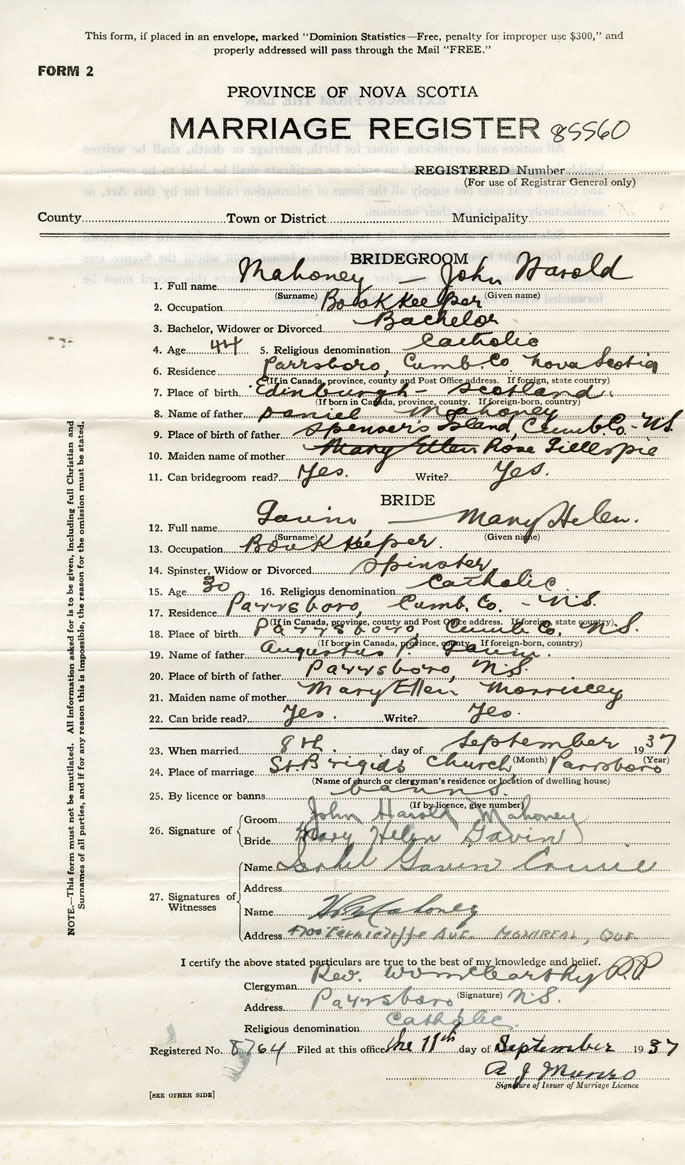 This form, if placed in an envelope, marked "Dominion Statistics—Free, penalty for improper use $300," and
properly addressed will pass through the Mail "FREE."
FORM 2
PROVINCE OF NOVA SCOTIA
MARRIAGE REGISTER 85560
REGISTERED Number
(For use of Registrar General only)
County Town or District Municipality
BRIDEGROOM
1. Full name Mahoney — John Harold
(Surname) (Given name)
2. Occupation Bookkeeper
3. Bachelor, Widower or Divorced Bachelor
4. Age 44 5. Religious denomination Catholic
6. Residence Parrsboro, Cumb. Co Nova Scotia
(If in Canada, province, county and Post Office address. If foreign, state country)
7. Place of birth Edinburgh - Scotland.
(If born in Canada, province, county. If foreign-born, country)
8. Name of father Daniel Mahoney
9. Place of birth of father Spenser's Island, Cumb. Co. - NS
10. Maiden name of mother Mary Ellen Rose Gillespie
11. Can bridegroom read? Yes. Write? Yes.
BRIDE
12. Full name Gavin — Mary Helen.
(Surname) (Given name)
13. Occupation Bookkeeper.
14. Spinster, Widow or Divorced Spinster
15. Age 30 16. Religious denomination Catholic
17. Residence Parrsboro, Cumb. Co. - N.S.
(If in Canada, province, county and Post Office address. If foreign, state country)
18. Place of birth Parrsboro, Cumb Co. N.S.
(If born in Canada, province, county. If foreign-born, country)
19. Name of father Augustus P. Gavin
20. Place of birth of father Parrsboro, N.S.
21. Maiden name of mother Mary Ellen Morrissey
22. Can bride read? Yes. Write? Yes.
23. When married 8th. day of September 1937
(Month) (Year)
24. Place of marriage St. Brigids Church, Parrsboro
(Name of church or clergyman's residence or location of dwelling house)
25. By licence or banns banns.
(If by licence, give number)
26. Signature of
Groom John Harold Mahoney
Bride Mary Helen Gavin
27. Signatures of Witnesses
Name Gavin
Address
Name Mahoney
Address Ave. Montreal, Que.
I certify the above stated particulars are true to the best of my knowledge and belief.
Clergyman Rev. Wm McCarthy P.P.
(Signature)
Address Parrsboro N.S.
Religious denomination Catholic.
Registered No. 8764 Filed at this office the 11th day of September 1937
A J Munro
Signature of Issuer of Marriage Licence
[SEE OTHER SIDE]
NOTE.—This form must not be mutilated. All information asked for is to be given, including full Christian and
Surnames of all parties, and if for any reason this is impossible, the reason for the omission must be stated.